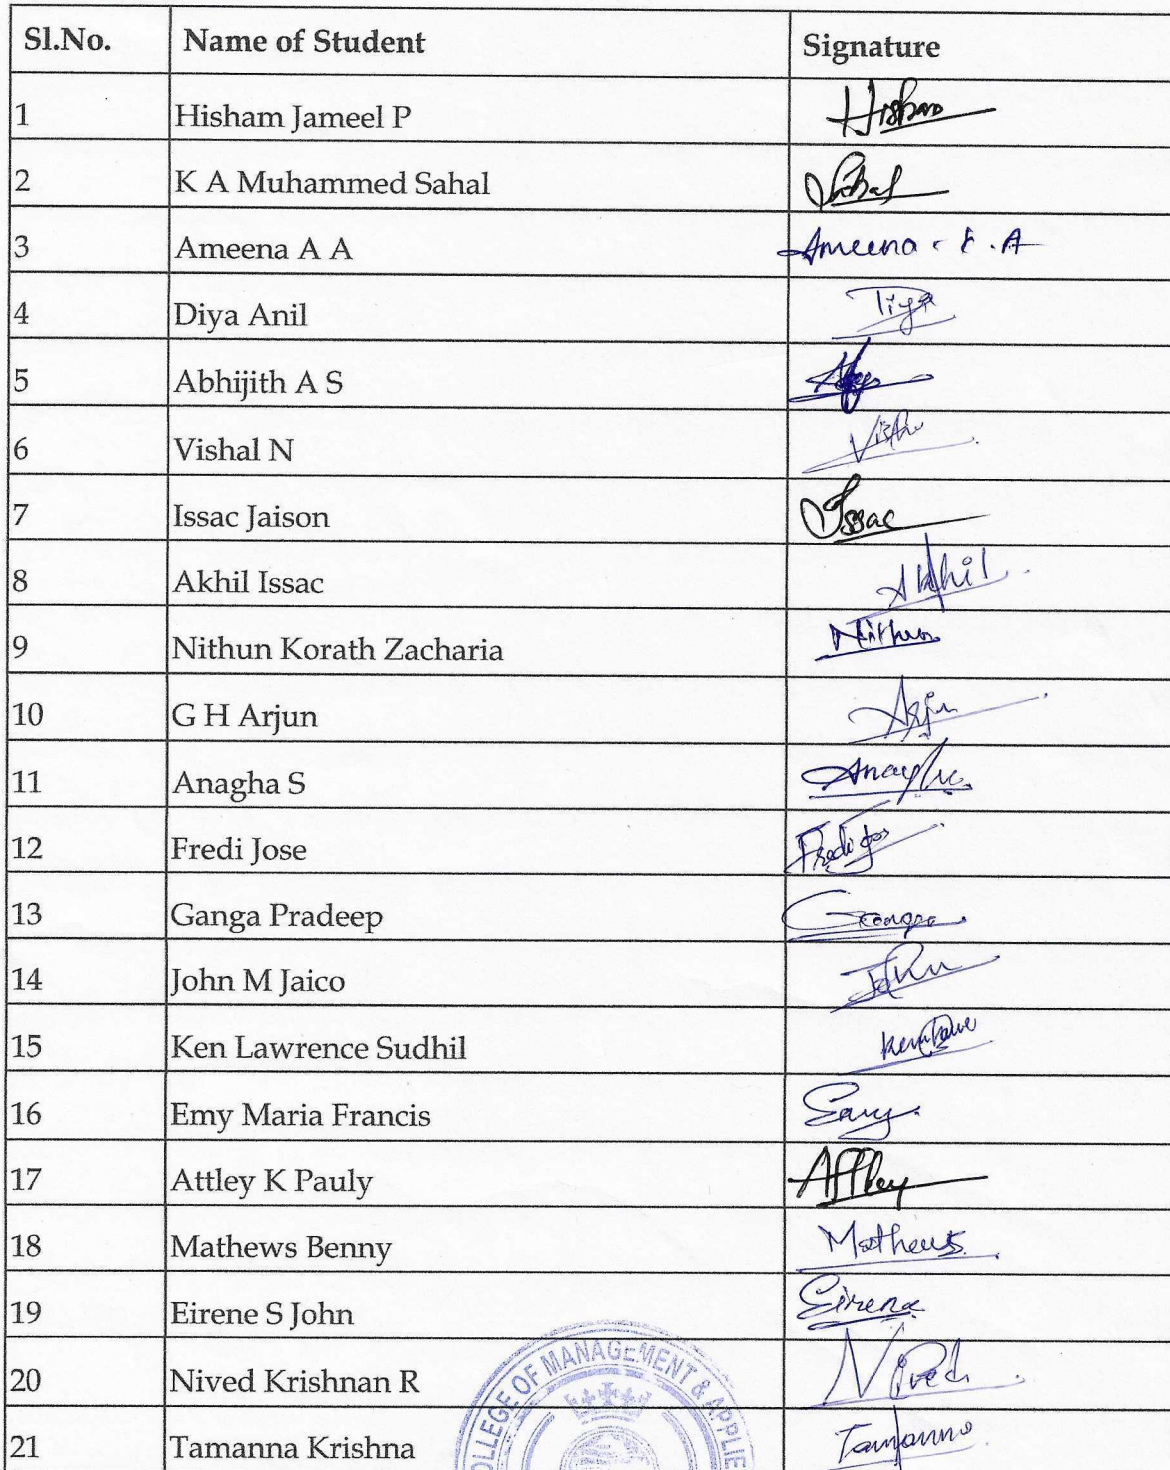 Sl.No. Name of Student Signature
1 Hisham Jameel P Hisham
2 K A Muhammed Sahal Sahal
3 Ameena A A Ameena . A . A
4 Diya Anil Diya
5 Abhijith A S
6 Vishal N
7 Issac Jaison Issac
8 Akhil Issac Akhil
9 Nithun Korath Zacharia Nithun
10 G H Arjun Arjun
11 Anagha S Anagha
12 Fredi Jose Fredi Jos
13 Ganga Pradeep Ganga
14 John M Jaico John
15 Ken Lawrence Sudhil
16 Emy Maria Francis Emy
17 Attley K Pauly Attley
18 Mathews Benny Mathews
19 Eirene S John Eirene
20 Nived Krishnan R Nived
21 Tamanna Krishna Tamanna
OLLEGE OF MANAGEMENT & APPLIE